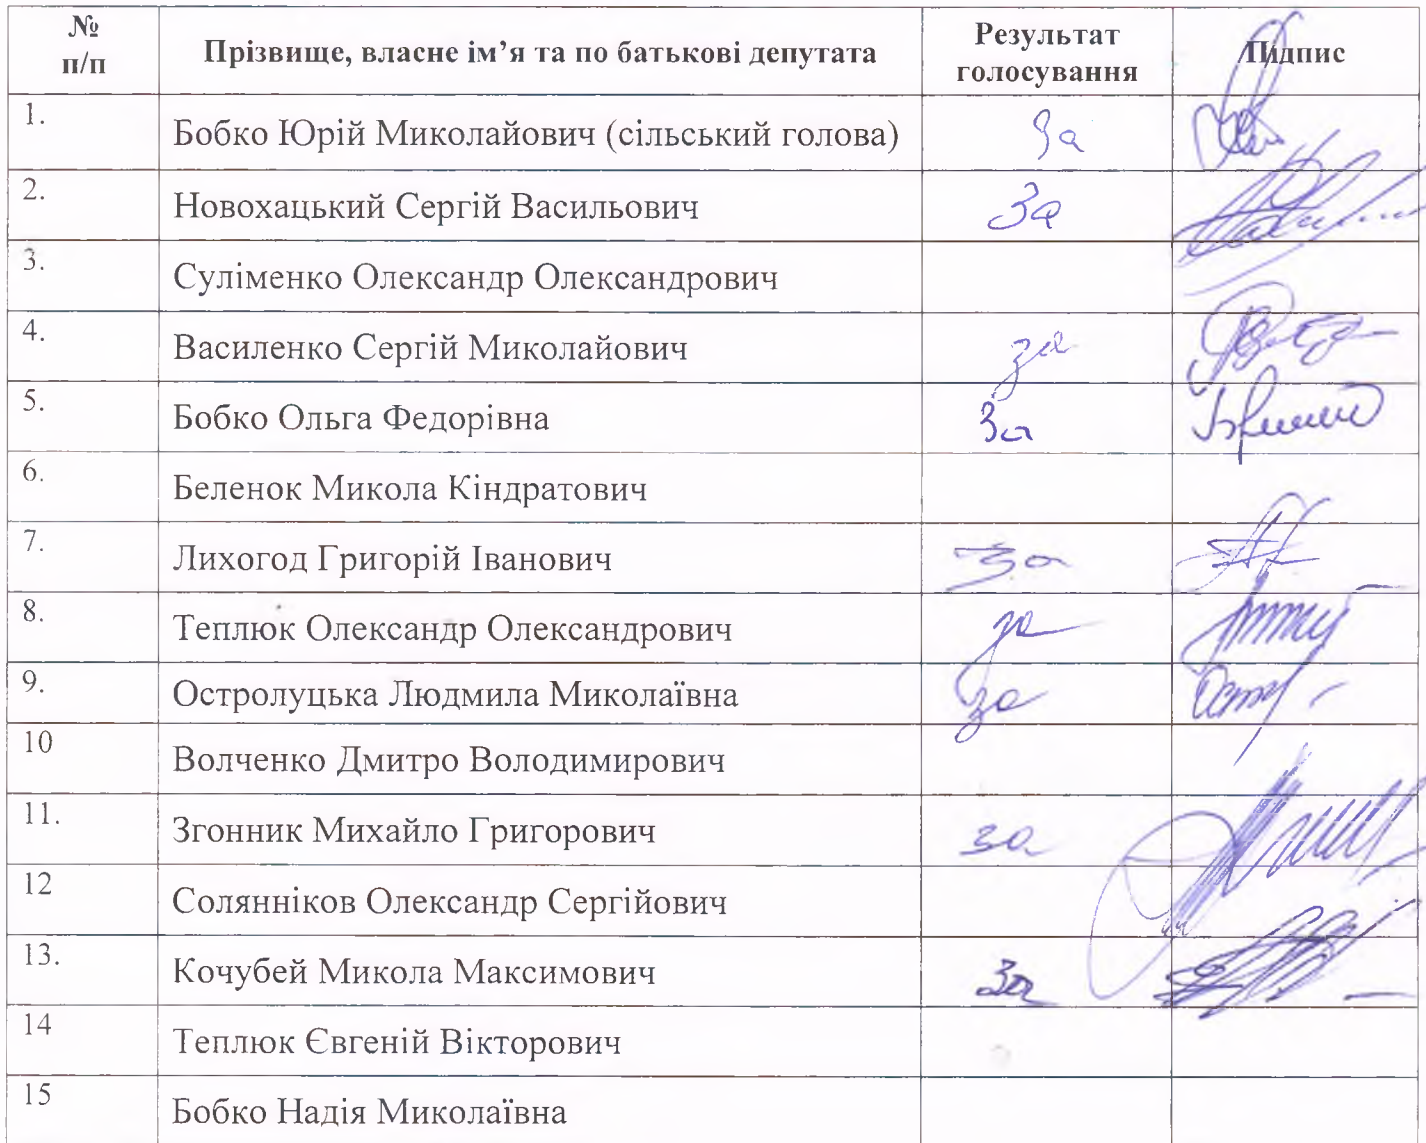 № п/п Прізвище, власне ім’я та по батькові депутата Результат голосування Підпис
1. Бобко Юрій Миколайович (сільський голова) За
2. Новохацький Сергій Васильович За
3. Суліменко Олександр Олександрович
4. Василенко Сергій Миколайович за
5. Бобко Ольга Федорівна За
6. Беленок Микола Кіндратович
7. Лихогод Григорій Іванович За
8. Теплюк Олександр Олександрович за
9. Остролуцька Людмила Миколаївна за
10 Волченко Дмитро Володимирович
11. Згонник Михайло Григорович за
12 Солянніков Олександр Сергійович
13. Кочубей Микола Максимович За
14 Теплюк Євгеній Вікторович
15 Бобко Надія Миколаївна